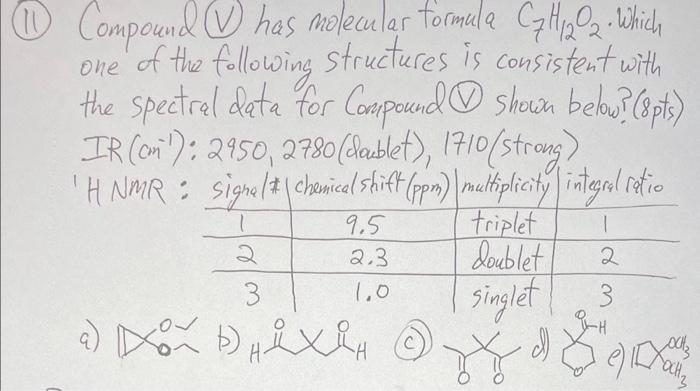 11 Compound V has molecular formula C7H12O2. Which
one of the following structures is consistent with
the spectral data for Compound V shown below? (8pts)
IR (cm⁻¹): 2950, 2780 (doublet), 1710 (strong)
¹H NMR: signal # chemical shift (ppm) multiplicity integral ratio
1 9.5 triplet 1
2 2.3 doublet 2
3 1.0 singlet 3
a) O O b) H O O H c) O O d) O H O e) OCH3 OCH3